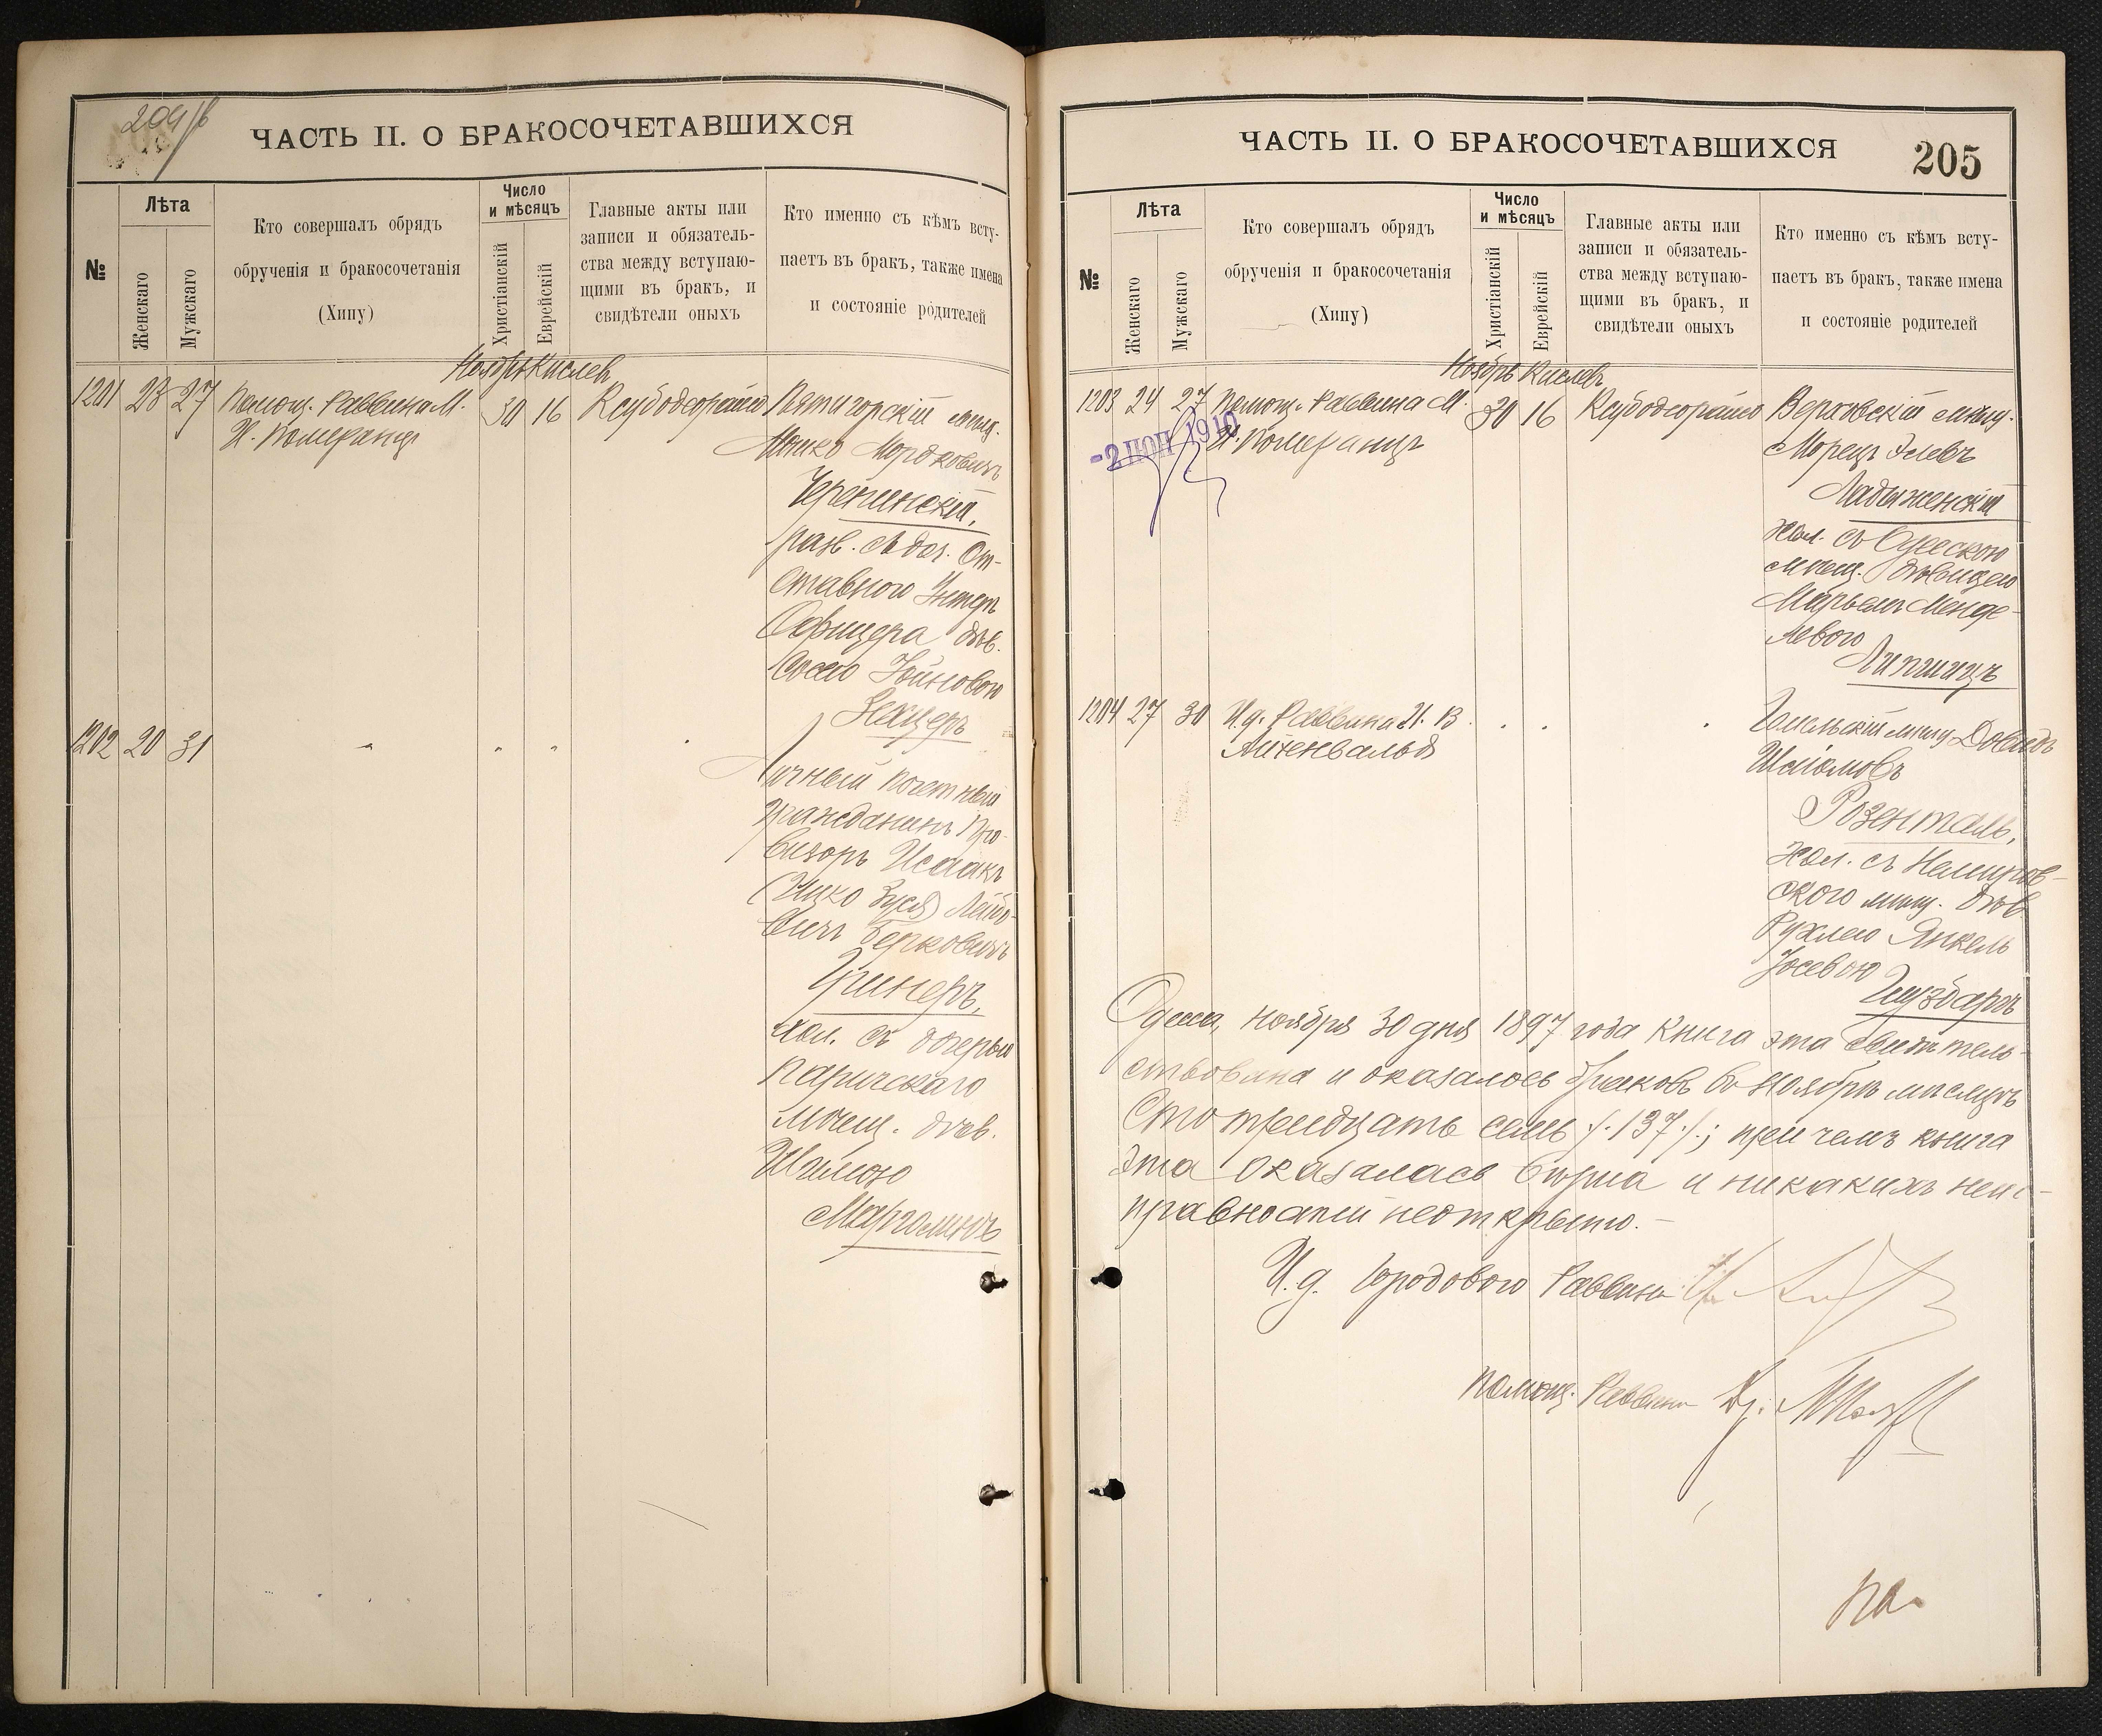 204/б
ЧАСТЬ II. О БРАКОСОЧЕТАВШИХСЯ
№
Лѣта
Женскаго
Мужскаго
Кто совершалъ обрядъ
обрученія и бракосочетанія
(Хипу)
Число
и мѣсяцъ
Христіанскій
Еврейскій
Главные акты или
записи и обязатель-
ства между вступаю-
щими въ бракъ, и
свидѣтели оныхъ
Кто именно съ кѣмъ всту-
паетъ въ бракъ, также имена
и состояніе родителей
Ноябрь Кислев
1201 23 27 Помощ. Раввина М.
И. Померанцъ
30 16
Пятигорскій мѣщ.
Мордковичъ
разв. съ доч. От-
ставного Унтеръ
Офицера дѣв.
1202 20 31
Личный почетный
гражданинъ Про-
визоръ Исаакъ
(Ицко Зуся) Лейбо-
вичъ Берковичъ
Гринеръ,
хол. съ дочерью
Паричскаго
мѣщ. дѣв.
Марголинъ
ЧАСТЬ II. О БРАКОСОЧЕТАВШИХСЯ
205
№
Лѣта
Женскаго
Мужскаго
Кто совершалъ обрядъ
обрученія и бракосочетанія
(Хипу)
Число
и мѣсяцъ
Христіанскій
Еврейскій
Главные акты или
записи и обязатель-
ства между вступаю-
щими въ бракъ, и
свидѣтели оныхъ
Кто именно съ кѣмъ всту-
паетъ въ бракъ, также имена
и состояніе родителей
Ноябрь Кислев
1203 24 27 Помощ. Раввина М.
И. Померанцъ
30 16
-2 1910
мѣщ.
Ладыженскій
хол. съ Одесскою
мѣщ. дѣвицею
Марьем Менде-
левою
Липшицъ
1204 27 30 И.д. Раввина И. В.
Айхенвальд
Гомельскій мѣщ. Довидъ
Розенталь,
хол. съ Немиров-
ского мѣщ. дѣв.
Рухлею Янкель
Іосевою
Одесса, ноября 30 дня 1897 года книга эта свидѣтель-
ствована и оказалось браковъ въ Ноябрѣ мѣсяцѣ
Сто тридцать семь /.137./; при чемъ книга
эта оказалась вѣрна и никакихъ неис-
правностей неоткрыто.
И.д. Городового Раввина
Помощ. Раввина Др.